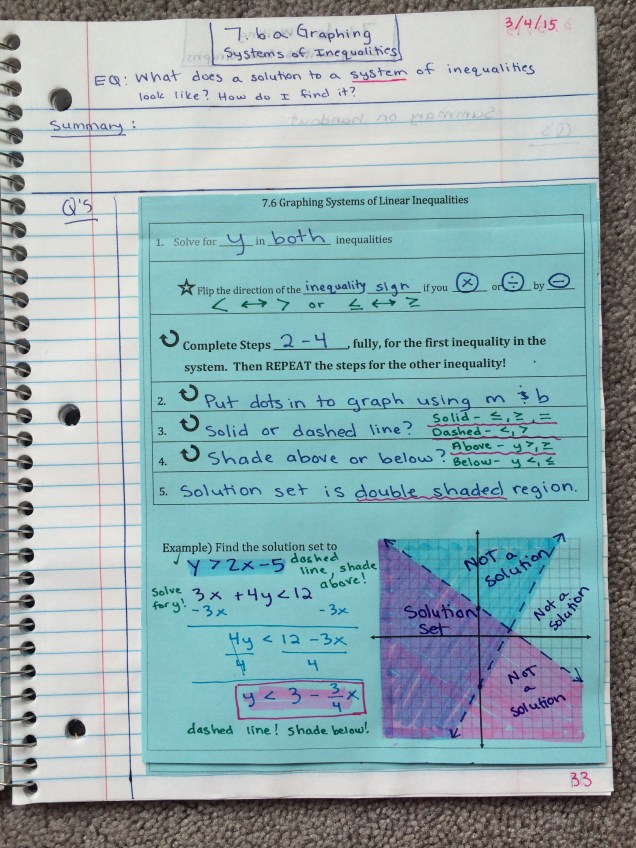 7.6a Graphing
Systems of Inequalities
3/4/15
EQ: What does a solution to a system of inequalities
look like? How do I find it?
Summary:
Q's
7.6 Graphing Systems of Linear Inequalities
1. Solve for y in both inequalities
☆ Flip the direction of the inequality sign if you ⊗ or ÷ by ⊖
< ↔ > or ≤ ↔ ≥
Complete Steps 2-4, fully, for the first inequality in the
system. Then REPEAT the steps for the other inequality!
2. Put dots in to graph using m & b
3. Solid or dashed line? Solid - ≤, ≥, =
Dashed - <, >
4. Shade above or below? Above - y >, ≥
Below - y <, ≤
5. Solution set is double shaded region.
Example) Find the solution set to
y > 2x - 5 dashed line, shade above!
Solve for y! 3x + 4y < 12
-3x -3x
4y < 12 - 3x
4 4
y < 3 - 3/4 x
dashed line! shade below!
Not a solution
Not a solution
Solution set
Not a solution
33